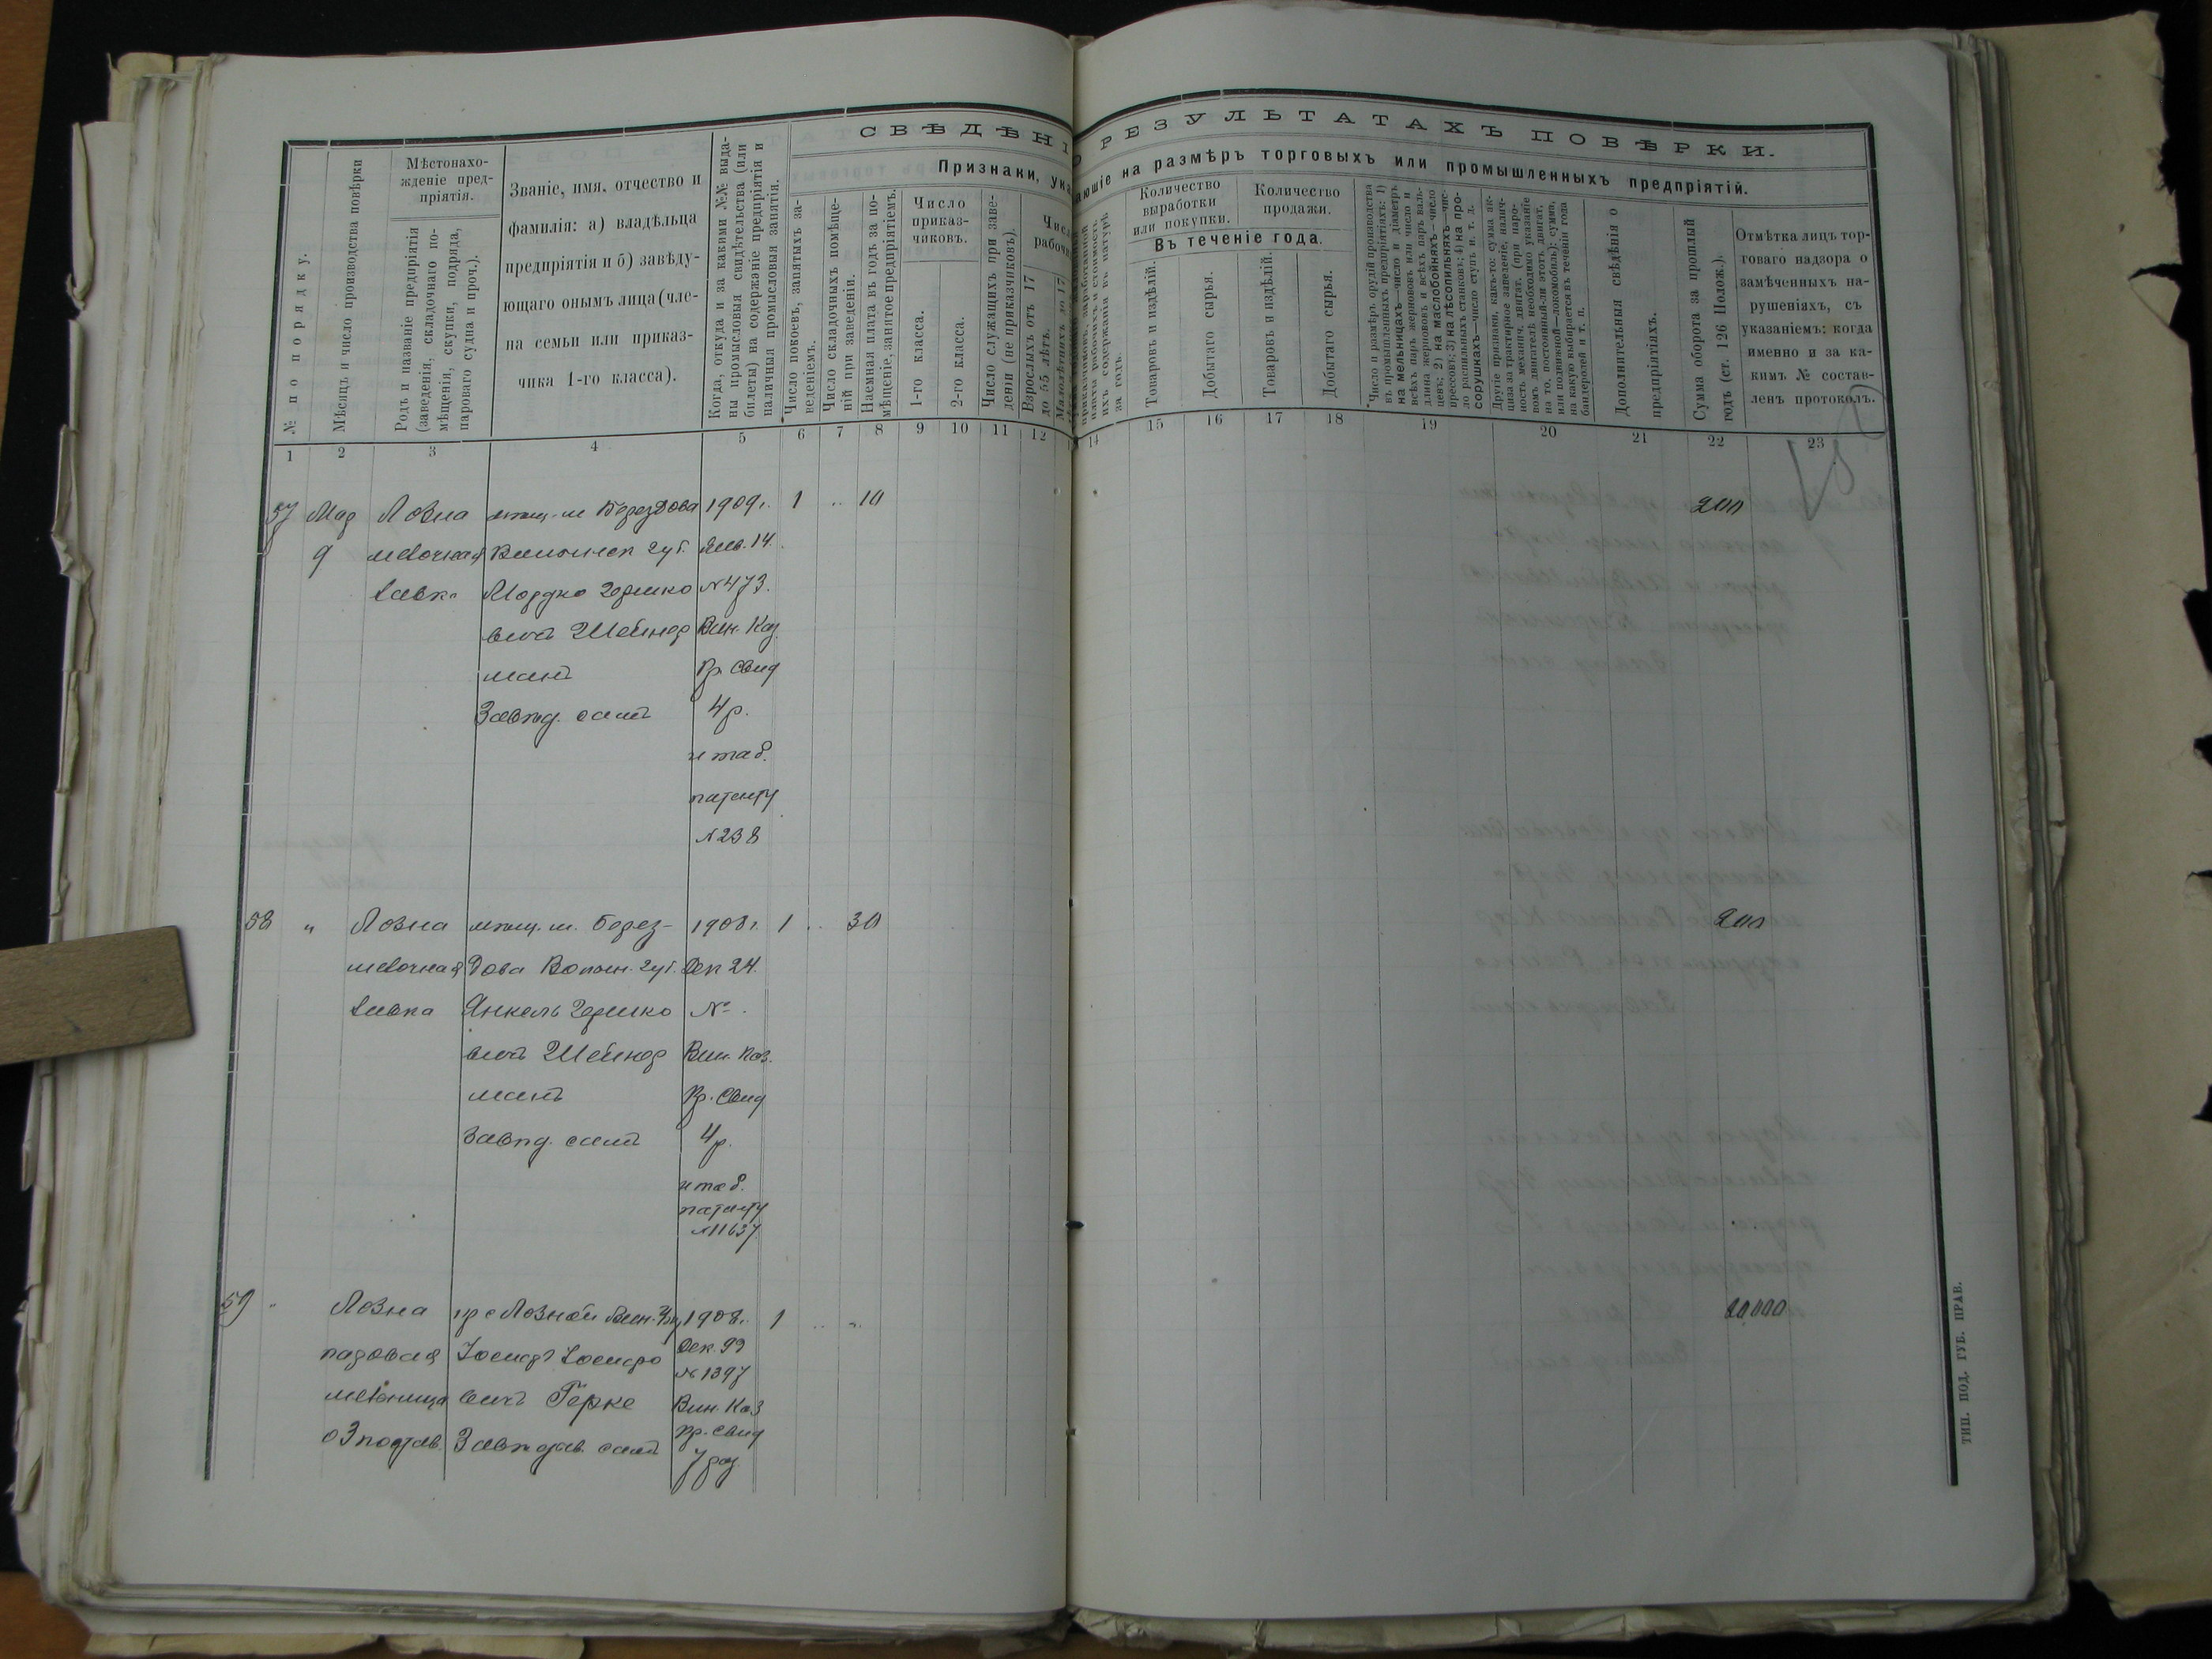 СВѢДѢНІ
О РЕЗУЛЬТАТАХЪ ПОВѢРКИ.
Признаки, ука
ающіе на размѣръ торговыхъ или промышленныхъ предпріятій.
№ по порядку.
Мѣсяцъ и число производства повѣрки
Мѣстонахо-
жденіе пред-
пріятія.
Родъ и названіе предпріятія
(заведенія, складочнаго по-
мѣщенія, скупки, подряда,
пароваго судна и проч.).
Званіе, имя, отчество и
фамилія: а) владѣльца
предпріятія и б) завѣду-
ющаго онымъ лица (чле-
на семьи или приказ-
чика 1-го класса).
Когда, откуда и за какими №№ выда-
ны промысловыя свидѣтельства (или
билеты) на содержаніе предпріятія и
наличныя промысловыя занятія.
Число покоевъ, занятыхъ за-
веденіемъ.
Число складочныхъ помѣще-
ній при заведеніи.
Наемная плата въ годъ за по-
мѣщеніе, занятое предпріятіемъ.
Число
приказ-
чиковъ.
1-го класса.
2-го класса.
Число служащихъ при заве-
деніи (не приказчиковъ).
Взрослыхъ отъ 17
до 55 лѣтъ.
Малолѣтнихъ до 17
ихъ содержанія въ натурѣ
за годъ.
Количество
выработки
или покупки.
Количество
продажи.
Въ теченіе года.
Товаровъ и издѣлій.
Добытаго сырья.
Товаровъ и издѣлій.
Добытаго сырья.
Число и размѣръ орудій производства
въ промышленныхъ предпріятіяхъ: 1)
на мельницахъ—число и діаметръ
всѣхъ паръ жернововъ или число и
длина жернововъ и всѣхъ паръ валь-
цевъ; 2) на маслобойняхъ—число
прессовъ; 3) на лѣсопильняхъ—чис-
ло распильныхъ станковъ; 4) на про-
сорушнахъ—число ступъ и т. д.
Другіе признаки, какъ-то: сумма ак-
циза за трактирное заведеніе, налич-
ность механич. двигат. (при паро-
вомъ двигателѣ необходимо указаніе
на то, постоянный-ли этотъ двигат.
или подвижной—локомобиль); сумма,
на какую выбирается въ теченіи года
бандеролей и т. п.
Дополнительныя свѣдѣнія о
предпріятіяхъ.
Сумма оборота за прошлый
годъ (ст. 126 Полож.).
Отмѣтка лицъ тор-
говаго надзора о
замѣченныхъ на-
рушеніяхъ, съ
указаніемъ: когда
именно и за ка-
кимъ № состав-
ленъ протоколъ.
1 2 3 4 5 6 7 8 9 10 11 12 14 15 16 17 18 19 20 21 22 23
57 Мар Лозна мѣщ. м. Берездова 1909г. 1 .. 10 200
9 мелочная Волынск губ. Янв. 14.
лавка Мордко Гершко №473.
вичъ Шейнер Вин. Каз.
манъ Пр. Свид
Завѣд. самъ 4 р.
и таб.
патенту
№238
58 " Лозна мѣщ. м. Берез- 1908г. 1 .. 30 200
мелочная дова Волын. губ. Дек 24.
лавка Янкель Гершко №
вичъ Шейнер Вин. Каз.
манъ Пр. Свид
Завѣд. самъ 4 р.
и таб.
патенту
№11637
59 " Лозна кр с Лозной Вин. у 1908г. 1 .. " 20000
паровая Іосифъ Іосифо Дек. 29
мельница вичъ Герке №1397
о 3 постав. Завѣдыв. самъ Вин. Каз
пр. Свид
7 раз.
ТИП. ПОД. ГУБ. ПРАВ.